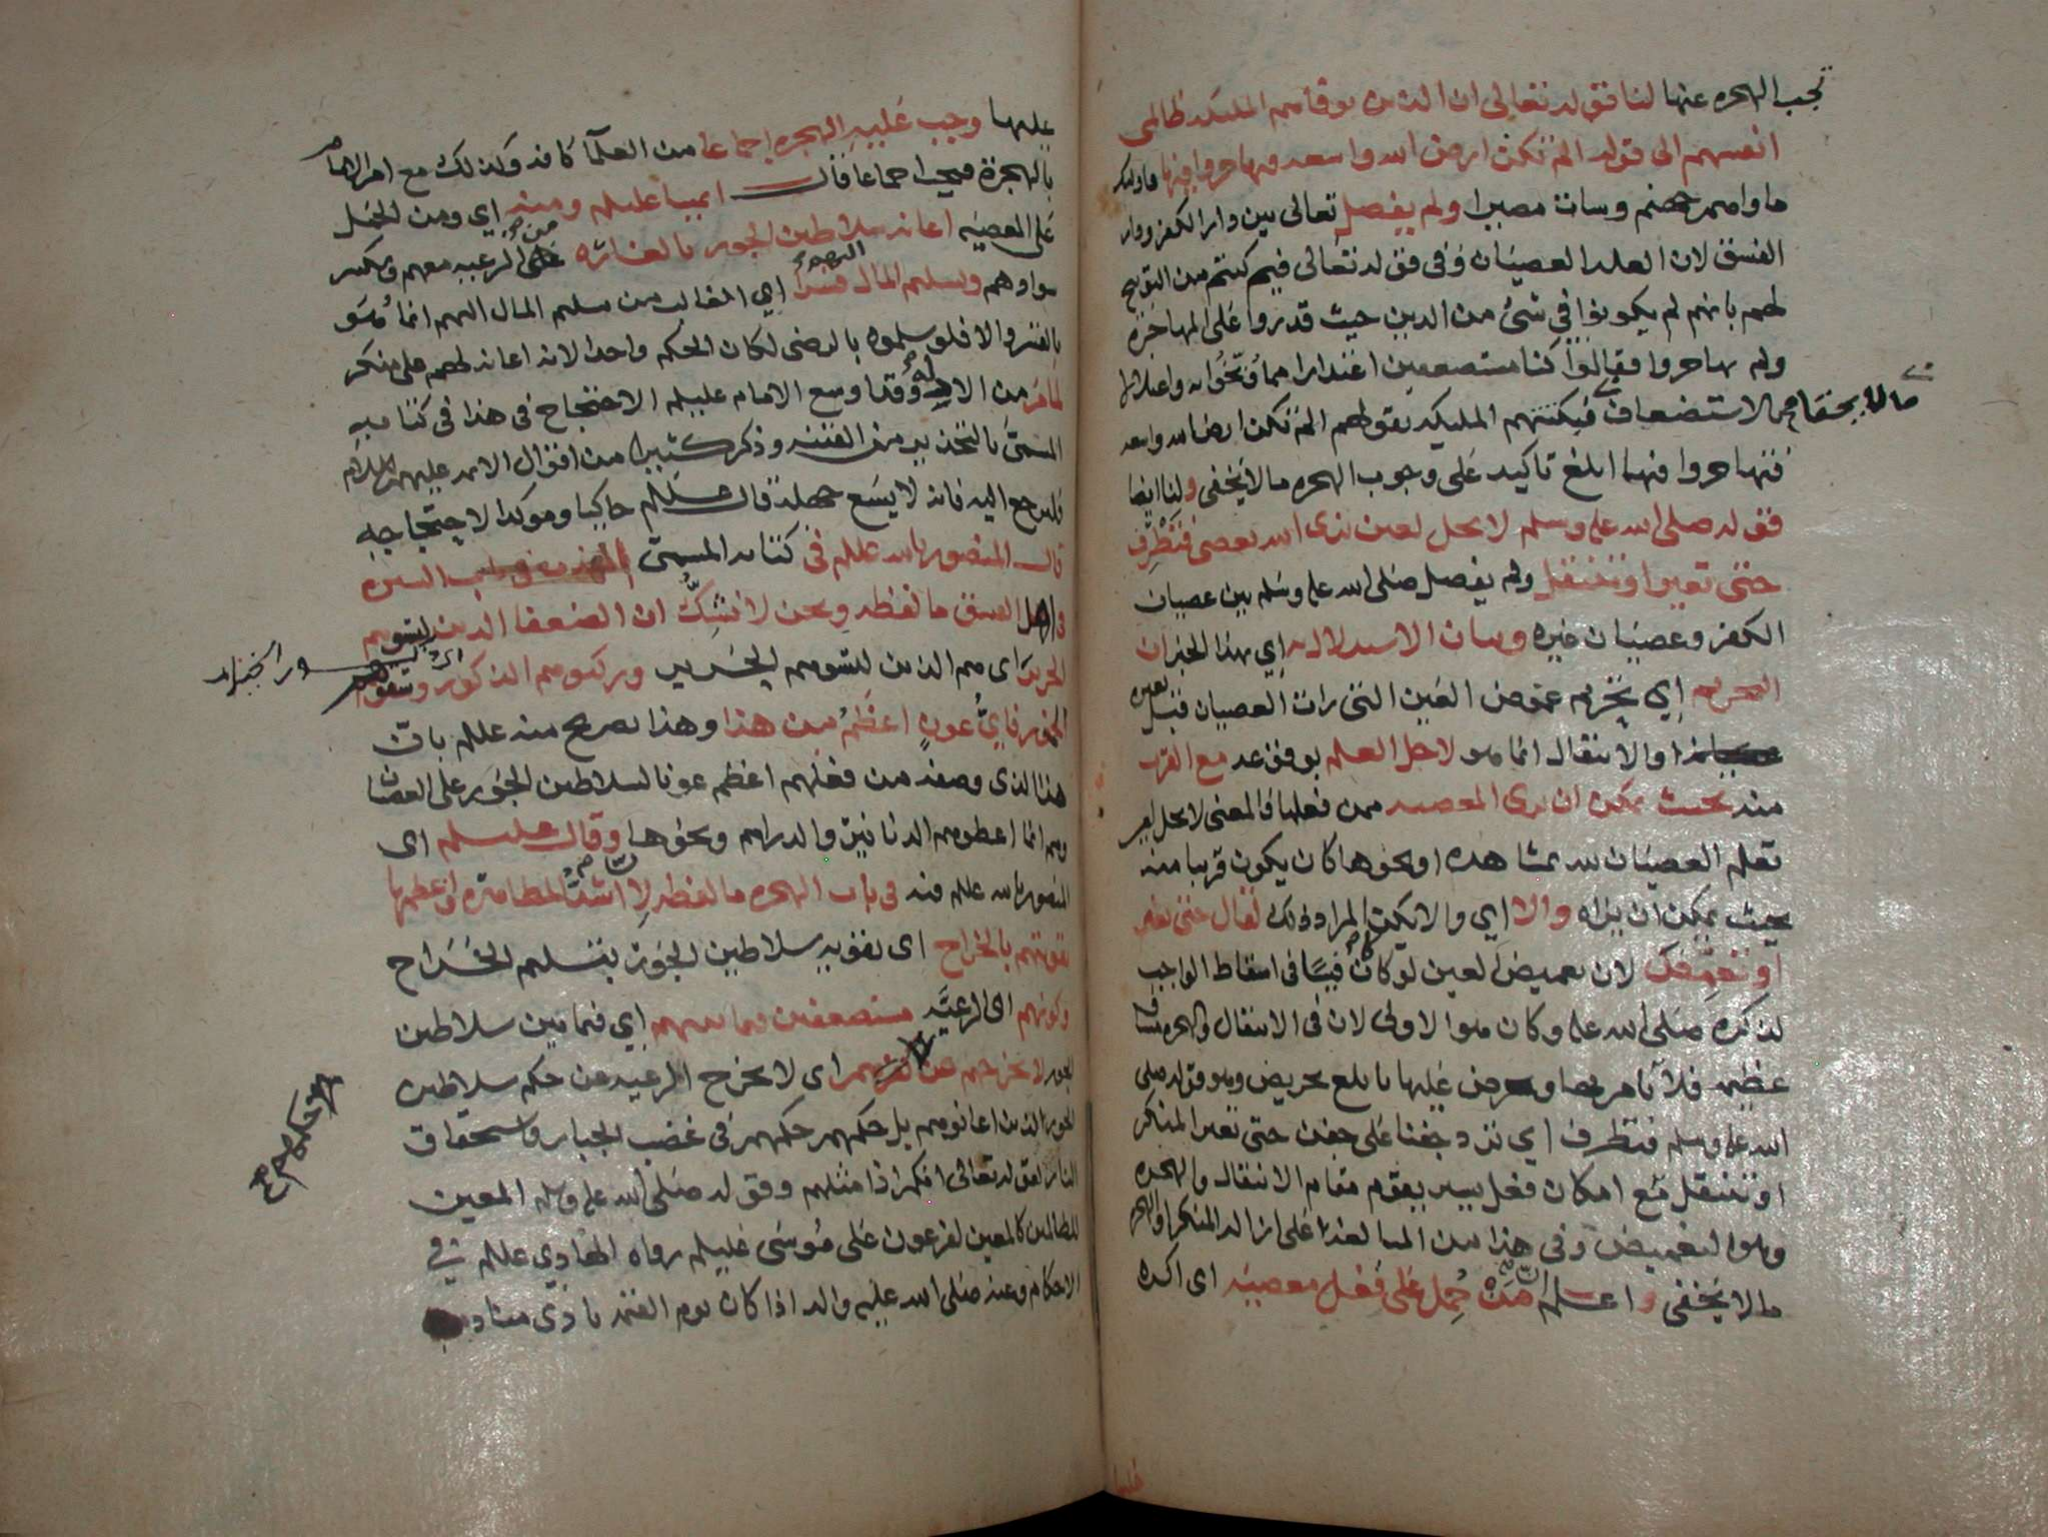 تجب الهجره عنها لنا قوله تعالى ان الذين توفاهم المليكه ظالمى
انفسهم الى قوله الم تكن ارض الله واسعه فتهاجروا فيها فاوليك
ماواهم جهنم وسات مصيرا ولم يفصل تعالى بين دار الكفر ودار
الفسق لان العله العصيان وفى قوله تعالى فيم كنتم من التوبيخ
لهم بانهم لم يكونوا في شئ من الدين حيث قدروا على المهاجرة
ولم يهاجروا فقالوا كنا مستضعفين اعتذارا مما وبخوا به واعتلالا
بالاستضعاف فبكتتهم المليكه بقولهم الم تكن ارض الله واسعه
فتهاجروا فيها ابلغ تاكيد على وجوب الهجره ما لا يخفى ولنا ايضا
قوله صلى الله عليه وسلم لا يحل لعين ترى الله يعصى فتطرف
حتى تغير او تنتقل ولم يفصل صلى الله عليه وسلم بين عصيان
الكفر وعصيان غيره وبيان الاستدلال به اي بهذا الخبر ان
التحريم اي تحريم غموض العين التى رات العصيان قبل تغييره
او الانتقال انما هو لاجل العلم بوقوعه مع القرب
منه بحيث يمكن ان يرى المعصيه ممن فعلها والمعنى لا يحل لمن
تعلم العصيان لله بمشاهده او نحوها كان يكون قريبا منه
بحيث يمكن ان يراه والا اي والا يكن المراد ذلك لقال حتى تغير
او تغمض لان تغميض العين لو كان كافيا فى اسقاط الواجب
لذكره صلى الله عليه وكان هو الاولى لان فى الانتقال والهجره مشاق
عظيمه فلا يامر بها ويحرض عليها بابلغ تحريض وهو قوله صلى
الله عليه وسلم فتطرف اي ترد جفنا على جفن حتى تغير المنكر
او تنتقل مع امكان فعل يسير يقوم مقام الانتقال والهجره
وهو التغميض وفى هذا من المبالغة على ازالة المنكر او الهجر
ما لا يخفى واعلم ان من حُمِل على فعل معصيه اى اكره
عليها وجب عليه الهجره إجماعا من العلمآ كافه وكذلك مع امر الامام
بالهجرة فيجب اجماعا قال ايمتنا عليلم ومنه اي ومن الحمل
على المعصيه اعانه سلاطين الجور بالغناره من الرعيه معهم وتكثير
سوادهم وتسليم المال اليهم قسرا اي الغالب من تسليم المال اليهم انما هو
بالقسر والا فلو سلموه بالرضى لكان الحكم واحدا لانه اعانه لهم على منكر
لما مر من الادله وقد اوسع الامام عليلم الاحتجاج فى هذا فى كتابه
المسمى بالتحذير من الفتنه وذكر كثيرا من اقوال الايمه عليهم السلام
فليرجع اليه فانه لا يسع جهله قال عليلم حاكيا وموكدا لاحتجاجه
قال المنصور بالله عليلم فى كتابه المسمى المهذب السيره
فى اهل الفسق ما لفظه ونحن لا نشك ان الضعفا الذين
اى هم الذين لبسوهم الحرير وركبوهم الذكور وسقوهم
الخمور فايُّ عونٍ اعظمُ من هذا وهذا تصريح منه عليلم بان
هذا الذى وصفه من فعلهم اعظم عونا لسلاطين الجور على العصيان
وهم انما اعطوهم الدنانير والدراهم ونحوها وقال عليلم اى
المنصور بالله عليلم فيه فى باب الهجره ما لفظه لان اشد المظاهره واعظمها
تقويتهم بالخراج اى تقويه سلاطين الجور بتسليم الخراج
وكونهم اى الرعيَّه مستضعفين فيما بينهم اي فيما بين سلاطين
الجور لا يخرجهم عن حكمهم اى لا يخرج الرعيه عن حكم سلاطين
الجور الذين اعانوهم بل حكمهم حكمهم فى غضب الجبار واستحقاق
النار لقوله تعالى انكم اذا مثلهم وقوله صلى الله عليه وسلم المعين
للظالمين كالمعين لفرعون على موسى عليلم رواه الهادي عليلم في
الاحكام وعنه صلى الله عليه واله اذا كان يوم القيمه نادى مناد